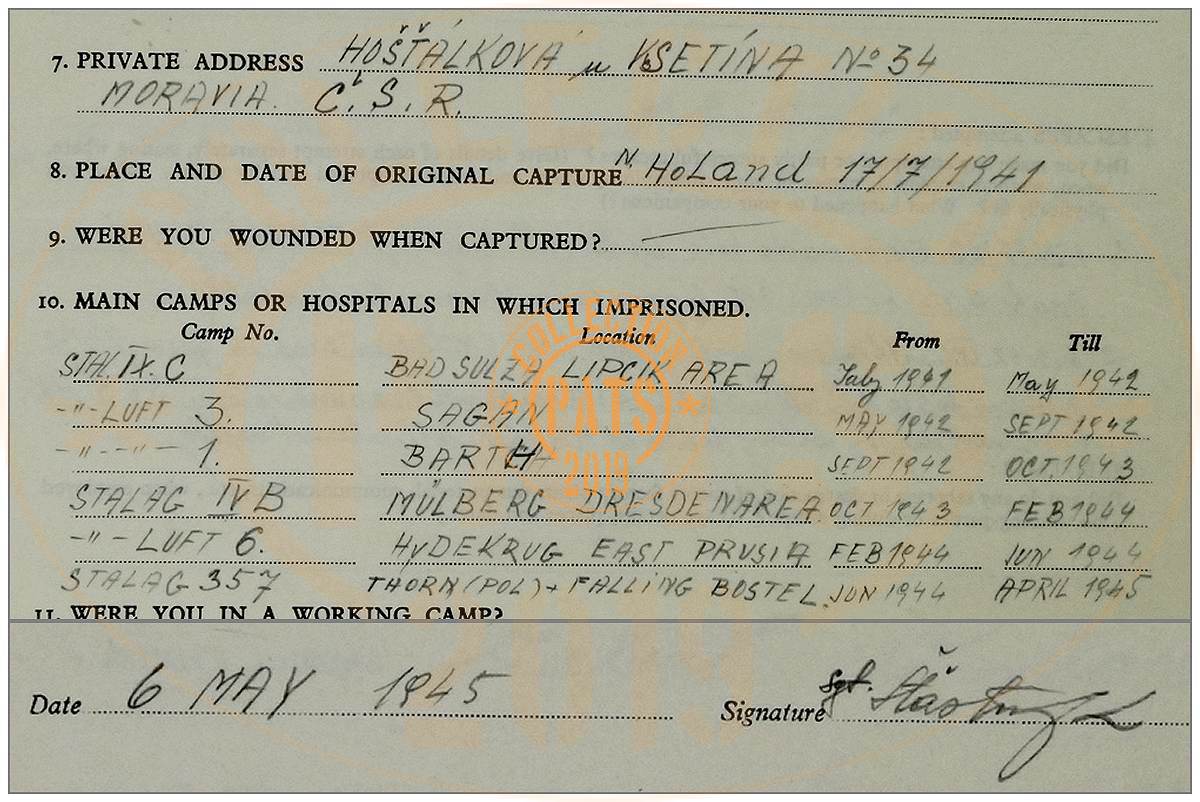 7. PRIVATE ADDRESS HOŠŤÁLKOVÁ u VSETÍNA No 34
MORAVIA. Č. S. R.
8. PLACE AND DATE OF ORIGINAL CAPTURE N. HoLand 17/7/1941
9. WERE YOU WOUNDED WHEN CAPTURED? —
10. MAIN CAMPS OR HOSPITALS IN WHICH IMPRISONED.
Camp No. Location From Till
STAL. IX. C BAD SULZA LIPCIK AREA July 1941 May 1942
-"- LUFT 3. SAGAN MAY 1942 SEPT 1942
-"- -"- 1. BARTH SEPT 1942 OCT. 1943
STALAG IV B MÜLBERG DRESDEN AREA OCT 1943 FEB 1944
-"- LUFT 6. HyDEKRUG EAST PRUSIA FEB 1944 JUN 1944
STALAG 357 THORN (POL) + FALLiNG BOSTEL. JUN 1944 APRIL 1945
11. WERE YOU IN A WORKING CAMP?
COLLECTION
PATS
2019
Date 6 MAY 1945 Signature Sgt.